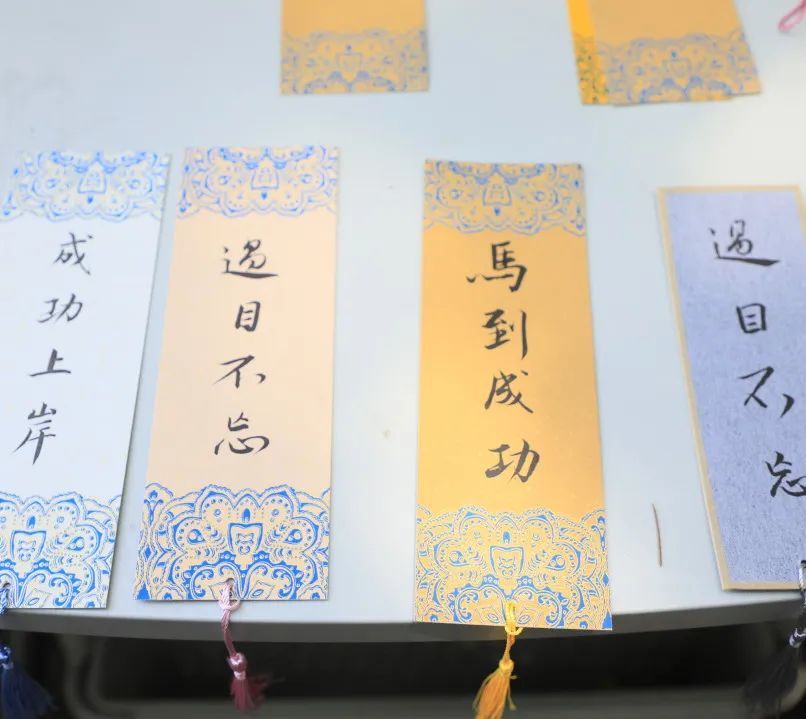 成功上岸
過目不忘
馬到成功
過目不忘